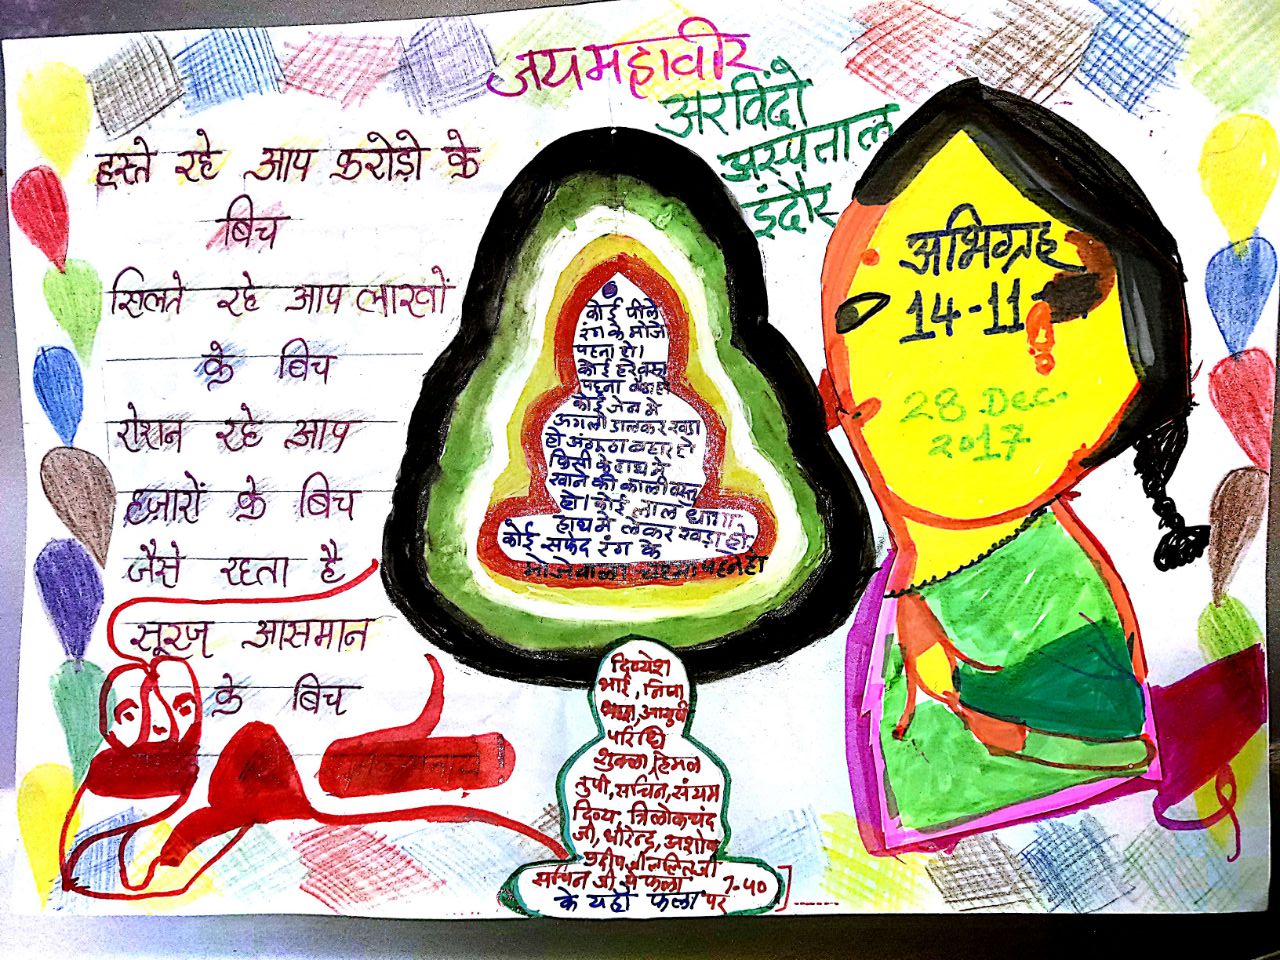 जय महावीर
अरविंदो
अस्पताल
इंदौर
हस्ते रहे आप करोड़ो के
बिच
खिलते रहे आप लाखों
के बिच
रोशन रहे आप
हजारों के बिच
जैसे रहता है
सूरज आसमान
के बिच
कोई पीले
रंग के मोजे
पहना हो।
कोई हरे वस्त्र
पहना
कोई जेब मे
अंगली डालकर खड़ा
हो अंगूठा बहार हो
किसी के हाथ मे
खाने की काली वस्तु
हो। कोई लाल धागा
हाथ मे लेकर खड़ा हो
कोई सफेद रंग के
अभिग्रह
14-11
28 Dec.
2017
दिव्येश
भाई, निपा
आयुषी
परिधि
शुक्ला, हिमल
तृपी, सचिन, संयम
दिव्य, त्रिलोकचंद
जी, धीरेन्द्र, अशोक
प्रदीप, ललित जी
सचिन जी से फला 7-40
के यहाँ फला पर